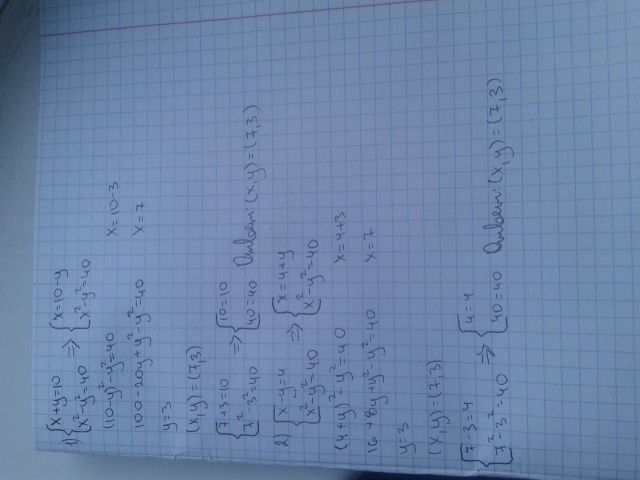 1) {x+y=10 x²-y²=40 => {x=10-y x²-y²=40
(10-y)²-y²=40 x=10-3
100-20y+y²-y²=40 x=7
y=3
(x,y)=(7,3)
{7+3=10 7²-3²=40 => {10=10 40=40 Ответ: (x,y)=(7,3)
2) {x-y=4 x²-y²=40 => {x=4+y x²-y²=40
(4+y)²-y²=40 x=4+3
16+8y+y²-y²=40 x=7
y=3
(x,y)=(7,3)
{7-3=4 7²-3²=40 => {4=4 40=40 Ответ: (x,y)=(7,3)